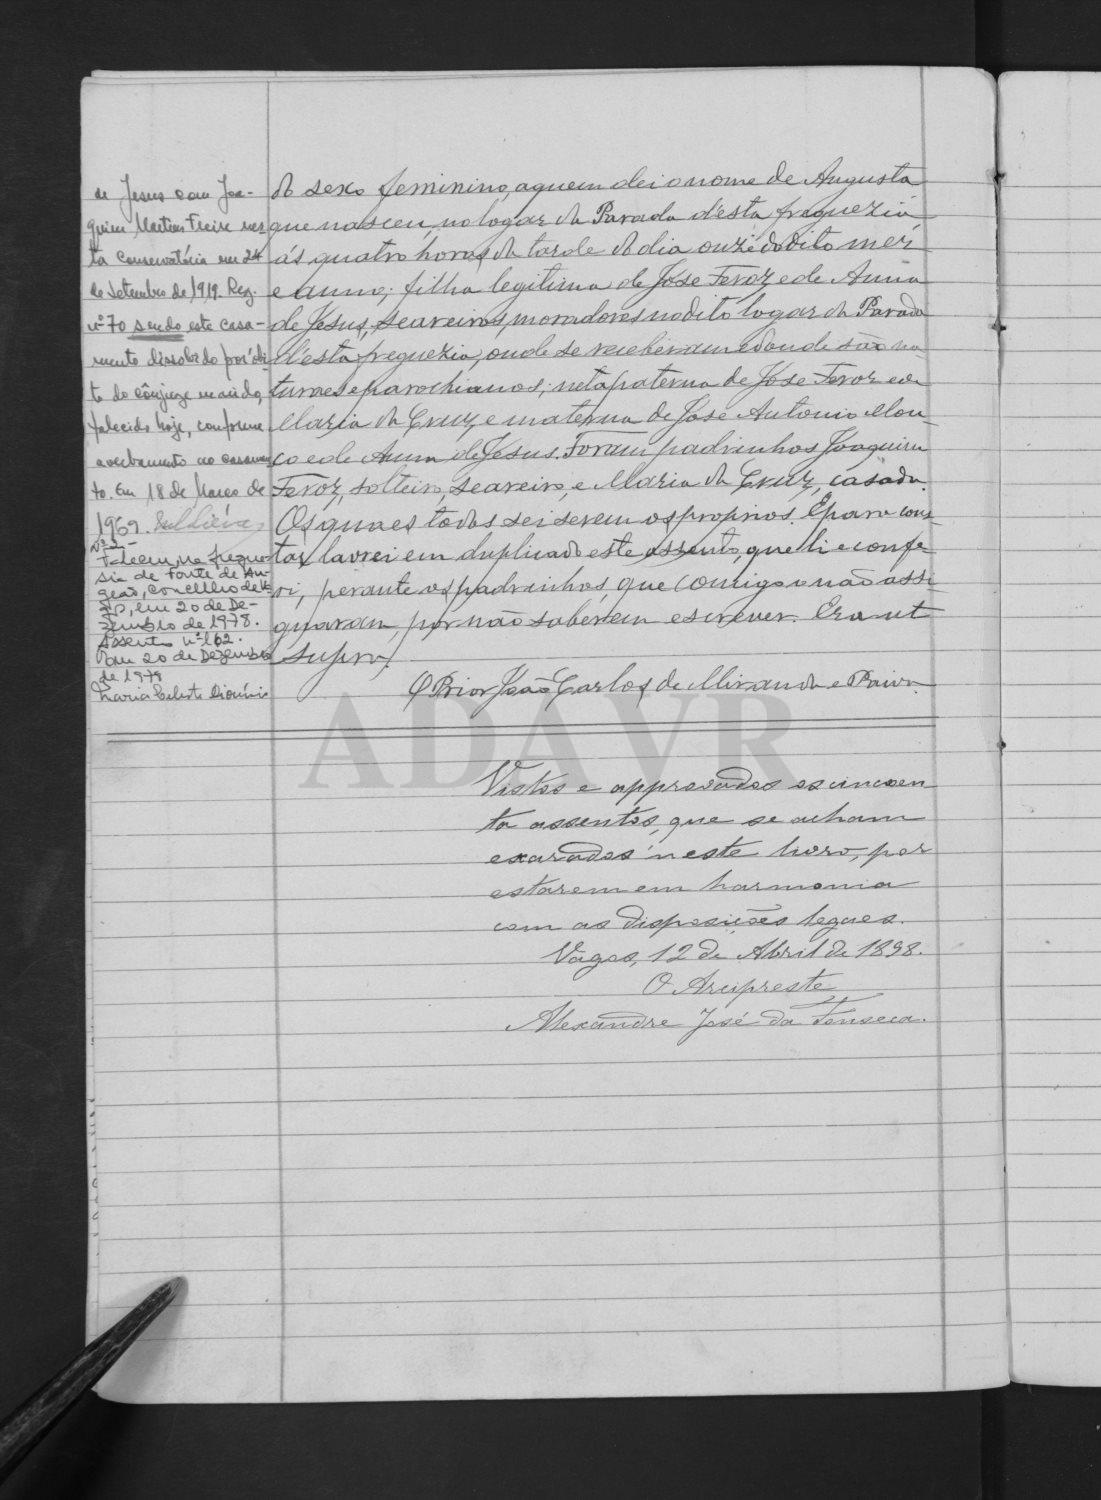 de Jesus com Joa-
quim Martins Freire nes
ta Conservatória em 24
de Setembro de 1919. Reg.
nº 70 sendo este casa-
mento dissolvido por óbi-
to do cônjuge marido,
falecido hoje, conforme
averbamento ao casamen
to. Em 18 de Março de
1969.
Nº 2-
Faleceu na fregue-
sia de Fonte de An-
geão, concelho de Va-
gos, em 20 de De-
zembro de 1978.
Assento nº 162.
Em 20 de Dezembro
de 1978
Maria Celeste Dionísio
do sexo feminino, a quem dei o nome de Augusta
que nasceu, no logar da Parada d'esta freguezia
ás quatro horas da tarde do dia onze do dito mez
e anno; filha legitima de José Feroz e de Anna
de Jesus, seareiros, moradores no dito logar da Parada
d'esta freguezia, onde se receberam e donde são na-
turaes e parochianos; neta paterna de José Feroz e de
Maria da Cruz, e materna de José Antonio Mou-
co e de Anna de Jesus. Foram padrinhos Joaquim
Feroz, solteiro, seareiro, e Maria da Cruz, casada.
Os quaes todos sei serem os proprios. E para cons-
tar lavrei em duplicado este assento, que li e confe-
ri, perante os padrinhos, que comigo não assi-
gnaram, por não saberem escrever. Era ut
supra.
O Prior João Carlos de Miranda e Paiva.
ADAVR
Vistos e approvados os cincoen
ta assentos, que se acham
exarados n'este livro, por
estarem em harmonia
com as disposições legaes.
Vagos, 12 de Abril de 1898.
O Arcipreste
Alexandre José da Fonseca.